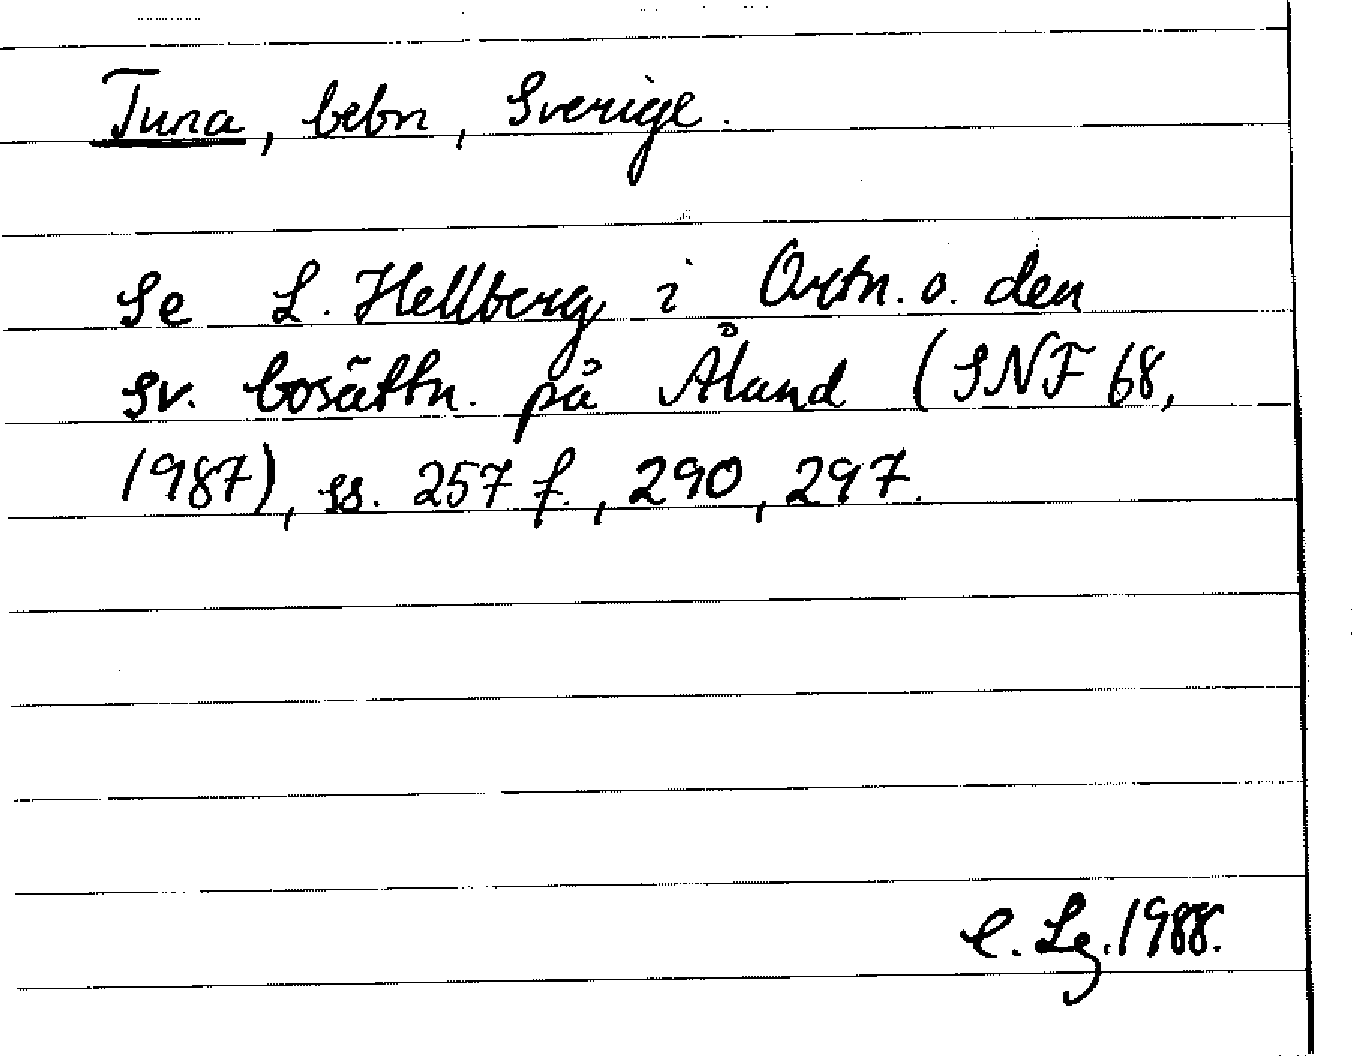 Tuna, bebn, Sverige.
Se L. Hellberg i Ortn. o. den
sv. bosättn. på Åland (SNF 68,
1987), ss. 257 f., 290, 297.
C. Lg. 1988.